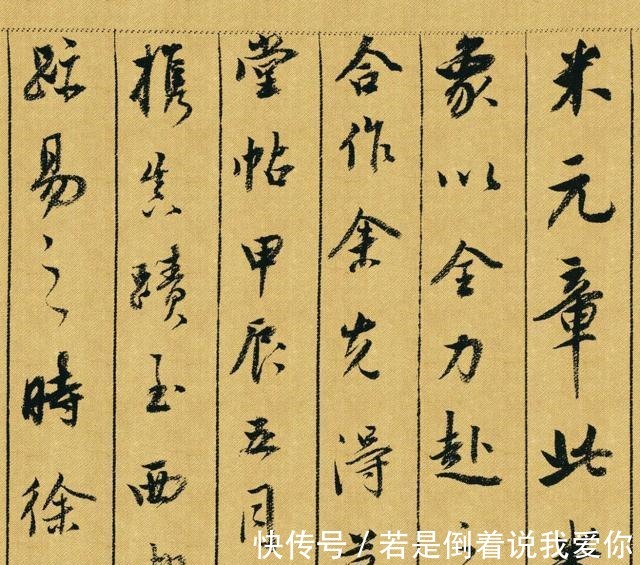 米元章此
象以全力赴
合作余先得
堂帖甲辰五月
携真蹟至西
跡易之時徐
快传号/若是倒着说我爱你